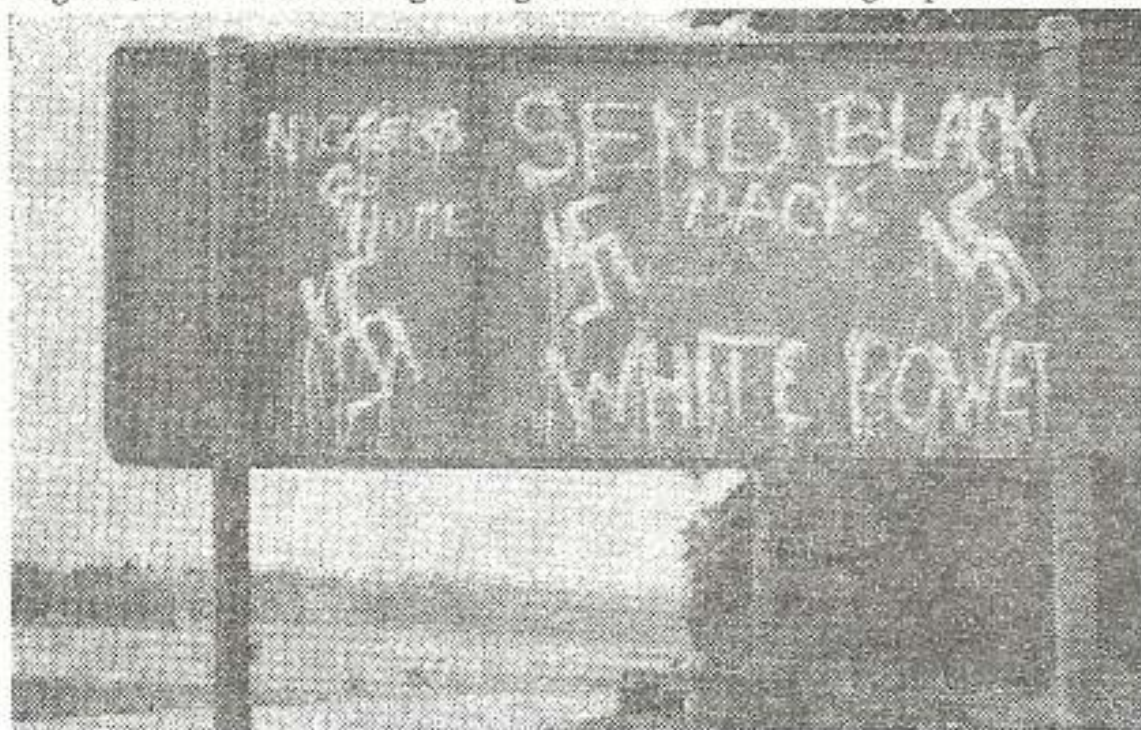 NIGGERS
GO
HOME
SEND BLACK
BACK
WHITE POWER